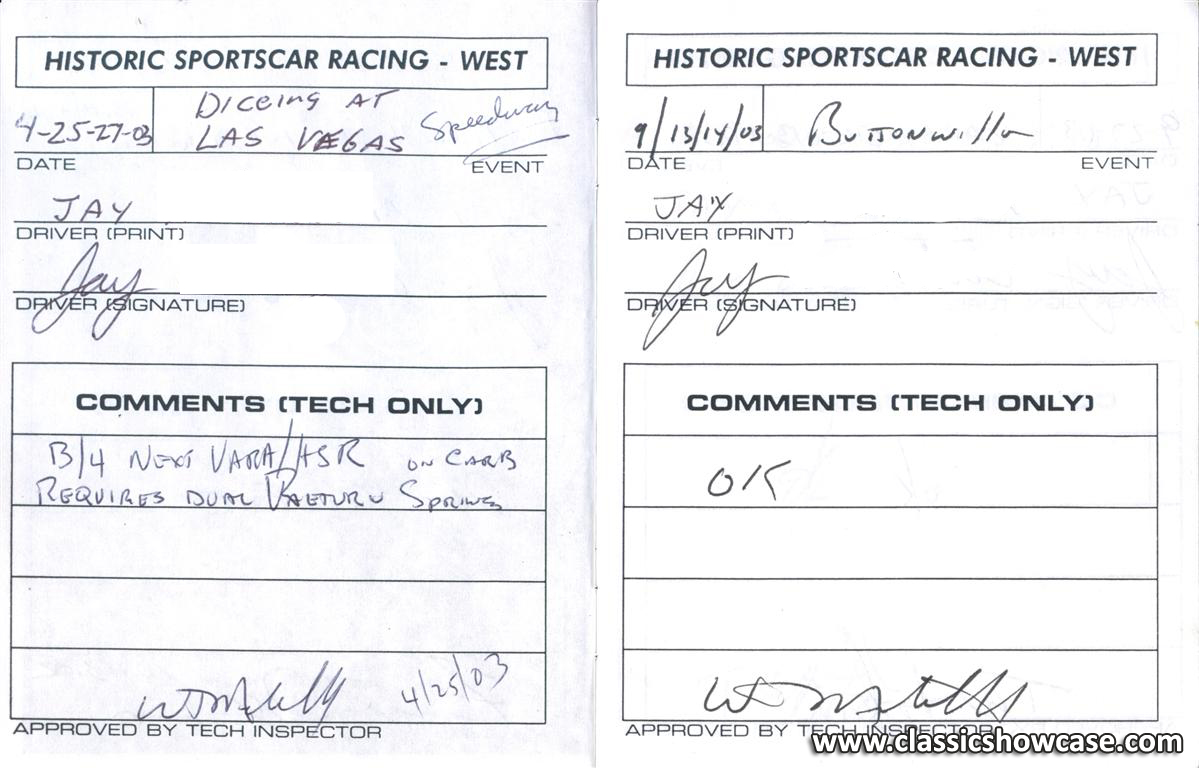 HISTORIC SPORTSCAR RACING - WEST
4-25-27-03
DICEING AT
LAS VEGAS Speedway
DATE EVENT
JAY
DRIVER (PRINT)
Jay
DRIVER (SIGNATURE)
COMMENTS (TECH ONLY)
B/4 NEXT VARA/HSR ON CARB
REQUIRES DUAL RETURN SPRINGS
4/25/03
APPROVED BY TECH INSPECTOR
HISTORIC SPORTSCAR RACING - WEST
9/13/14/03 BUTTONWILLOW
DATE EVENT
JAY
DRIVER (PRINT)
Jay
DRIVER (SIGNATURE)
COMMENTS (TECH ONLY)
OK
APPROVED BY TECH INSPECTOR
www.classicshowcase.com